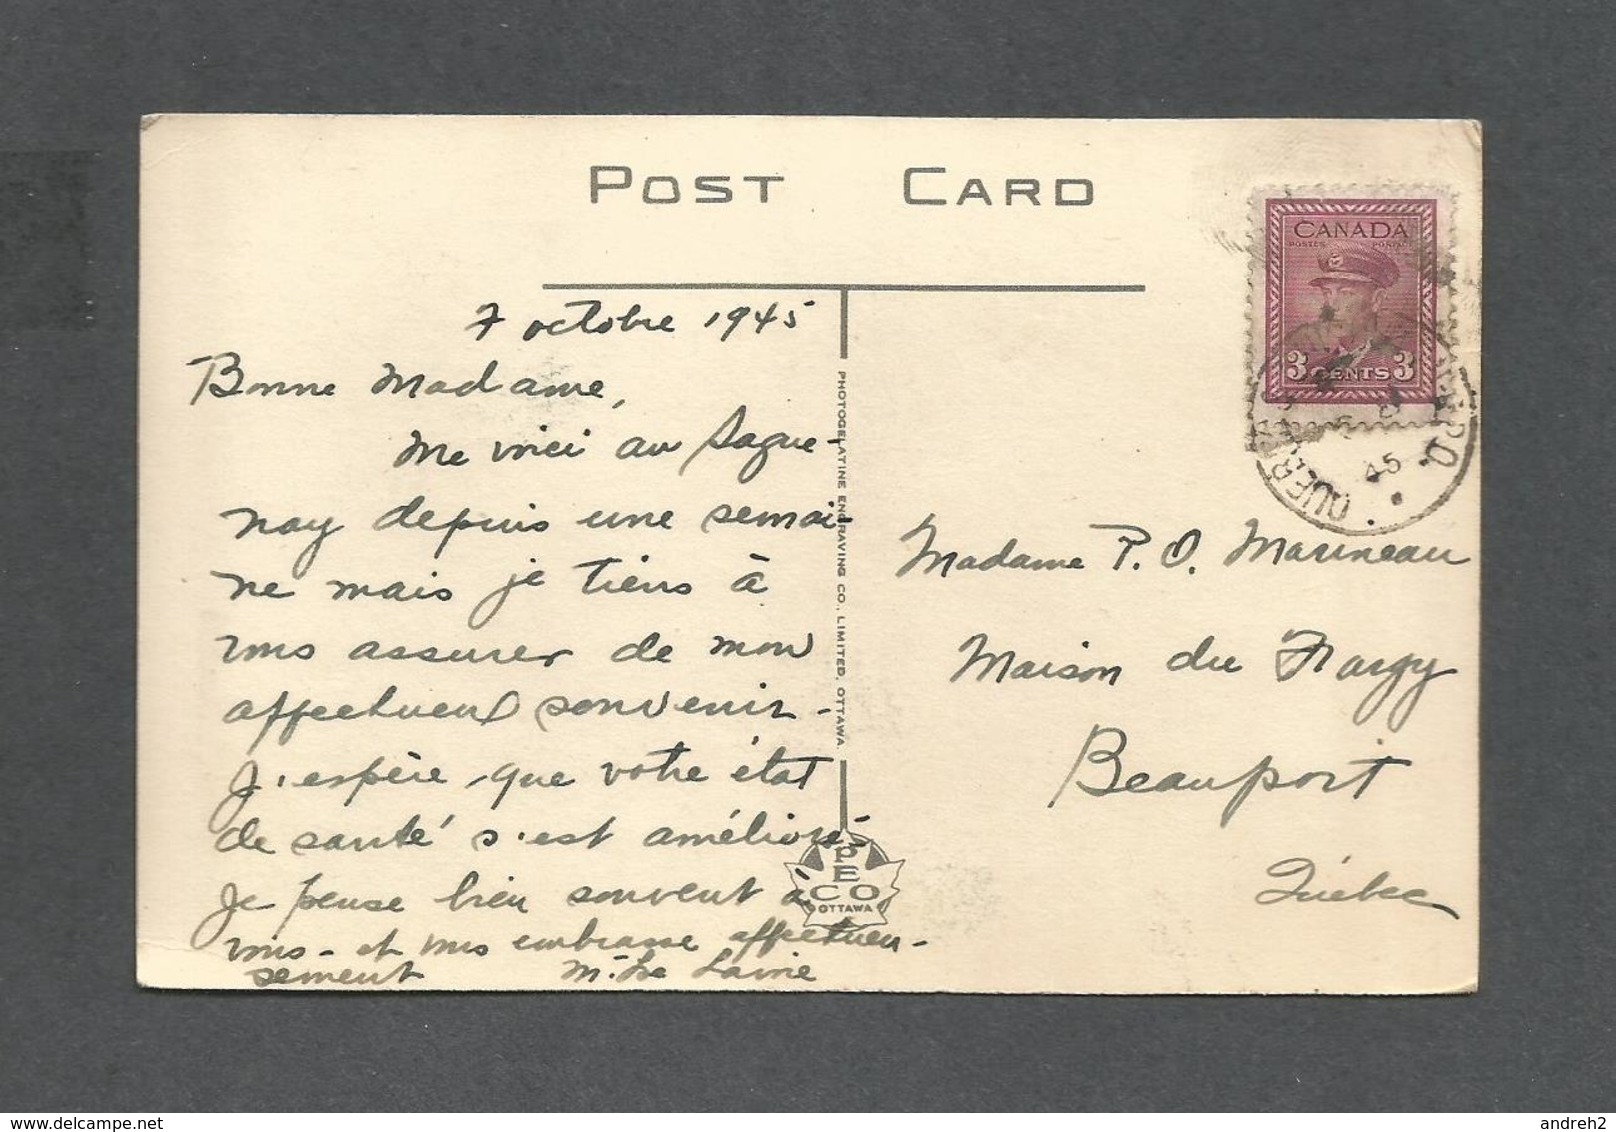 POST CARD
CANADA
POSTES POSTAGE
3 CENTS 3
45
P.Q.
7 octobre 1945
Bonne Madame,
Me voici au Sague-
nay depuis une semai-
ne mais je tiens à
vous assurer de mon
affectueux souvenir.
J'espère que votre état
de santé s'est amélioré.
Je pense bien souvent à
vous - et vous embrasse affectueu-
sement
PHOTOGELATINE ENGRAVING CO., LIMITED, OTTAWA.
PECO
OTTAWA
Madame P. O. Marineau
Maison du
Beauport
Québec
delcampe.net
andreh2